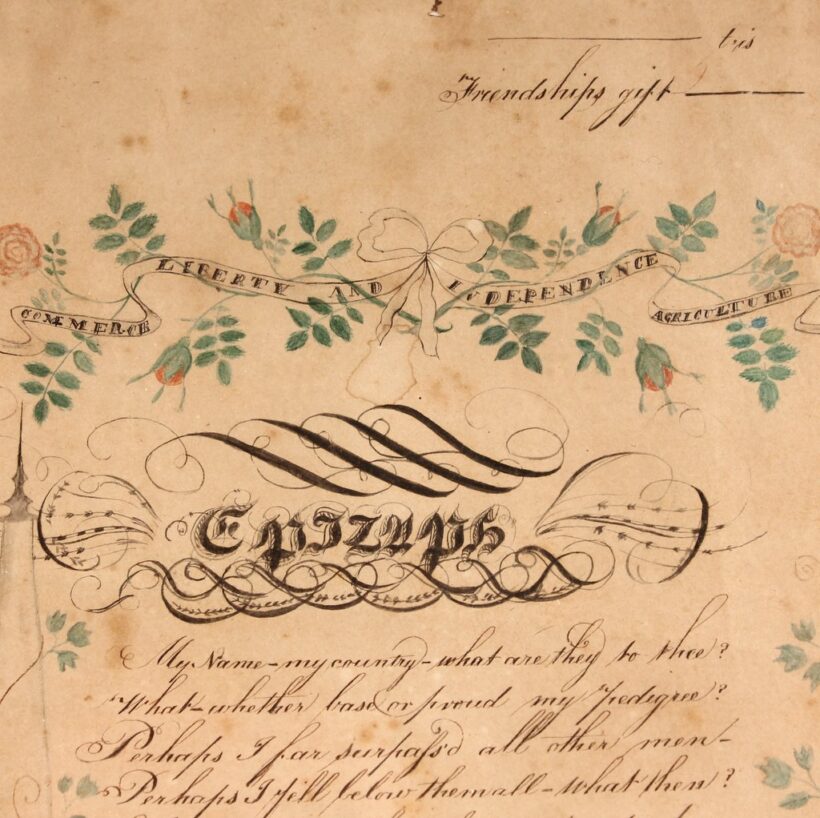 tis
Friendships gift
COMMERCE LIBERTY AND INDEPENDENCE AGRICULTURE
Epitaph
My Name - my country - what are they to thee?
What - whether base or proud my Pedigree?
Perhaps I far surpass'd all other men -
Perhaps I fell below them all - what then?